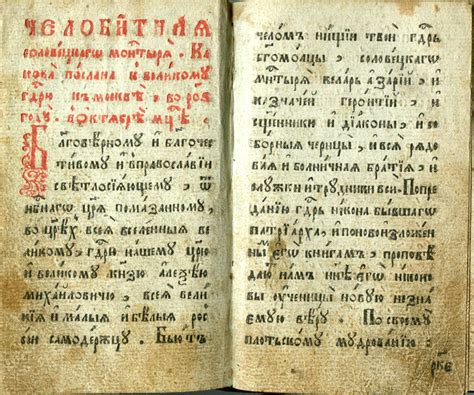 ЧЕЛОБИТНАЯ
соловецкагѡ монⷭ҇тырѧ . Ка
кова послана к великому
гдⷭ҇рю к москвѣ , во рѻ҃ѕ
году . в ѻктѧбрѣ мцⷭ҇ѣ .
Благовѣрному и благочес
тивому и вправославїи
свѣтлосїѧющему , ѿ
нб҃нагѡ цр҃ѧ помазанному ,
во цр҃ѣхъ всеѧ вселенныѧ ве
ликому , гдⷭ҇рю нашему цр҃ю
и великому кн҃зю алеѯѣю
михайловичю , всеѧ вели
кїѧ и малыѧ и бѣлыѧ рос
сїи самодержцу . Бьютъ
челомъ нищїи твои гдⷭ҇рь
бг҃омолцы , соловецкагѡ
мнⷭ҇тырѧ келарь азарїй , и
казначей геронтїи , и
сщ҃енники и дїаконы , и со
борныѧ черньцы , и всѧ рѧдо
ваѧ и болничнаѧ братїѧ , и
служки и трудники вси . Попре
данїю гдⷭ҇рь никона бывшагѡ
патрїарха , и поновоизложен
ны егѡ книгамъ , проповѣ
даю намъ ннѣ егѡ никоно
вы ученицы новую незна
емую вѣру . По своему
плотьскому мудрованїю ,
рк҃є